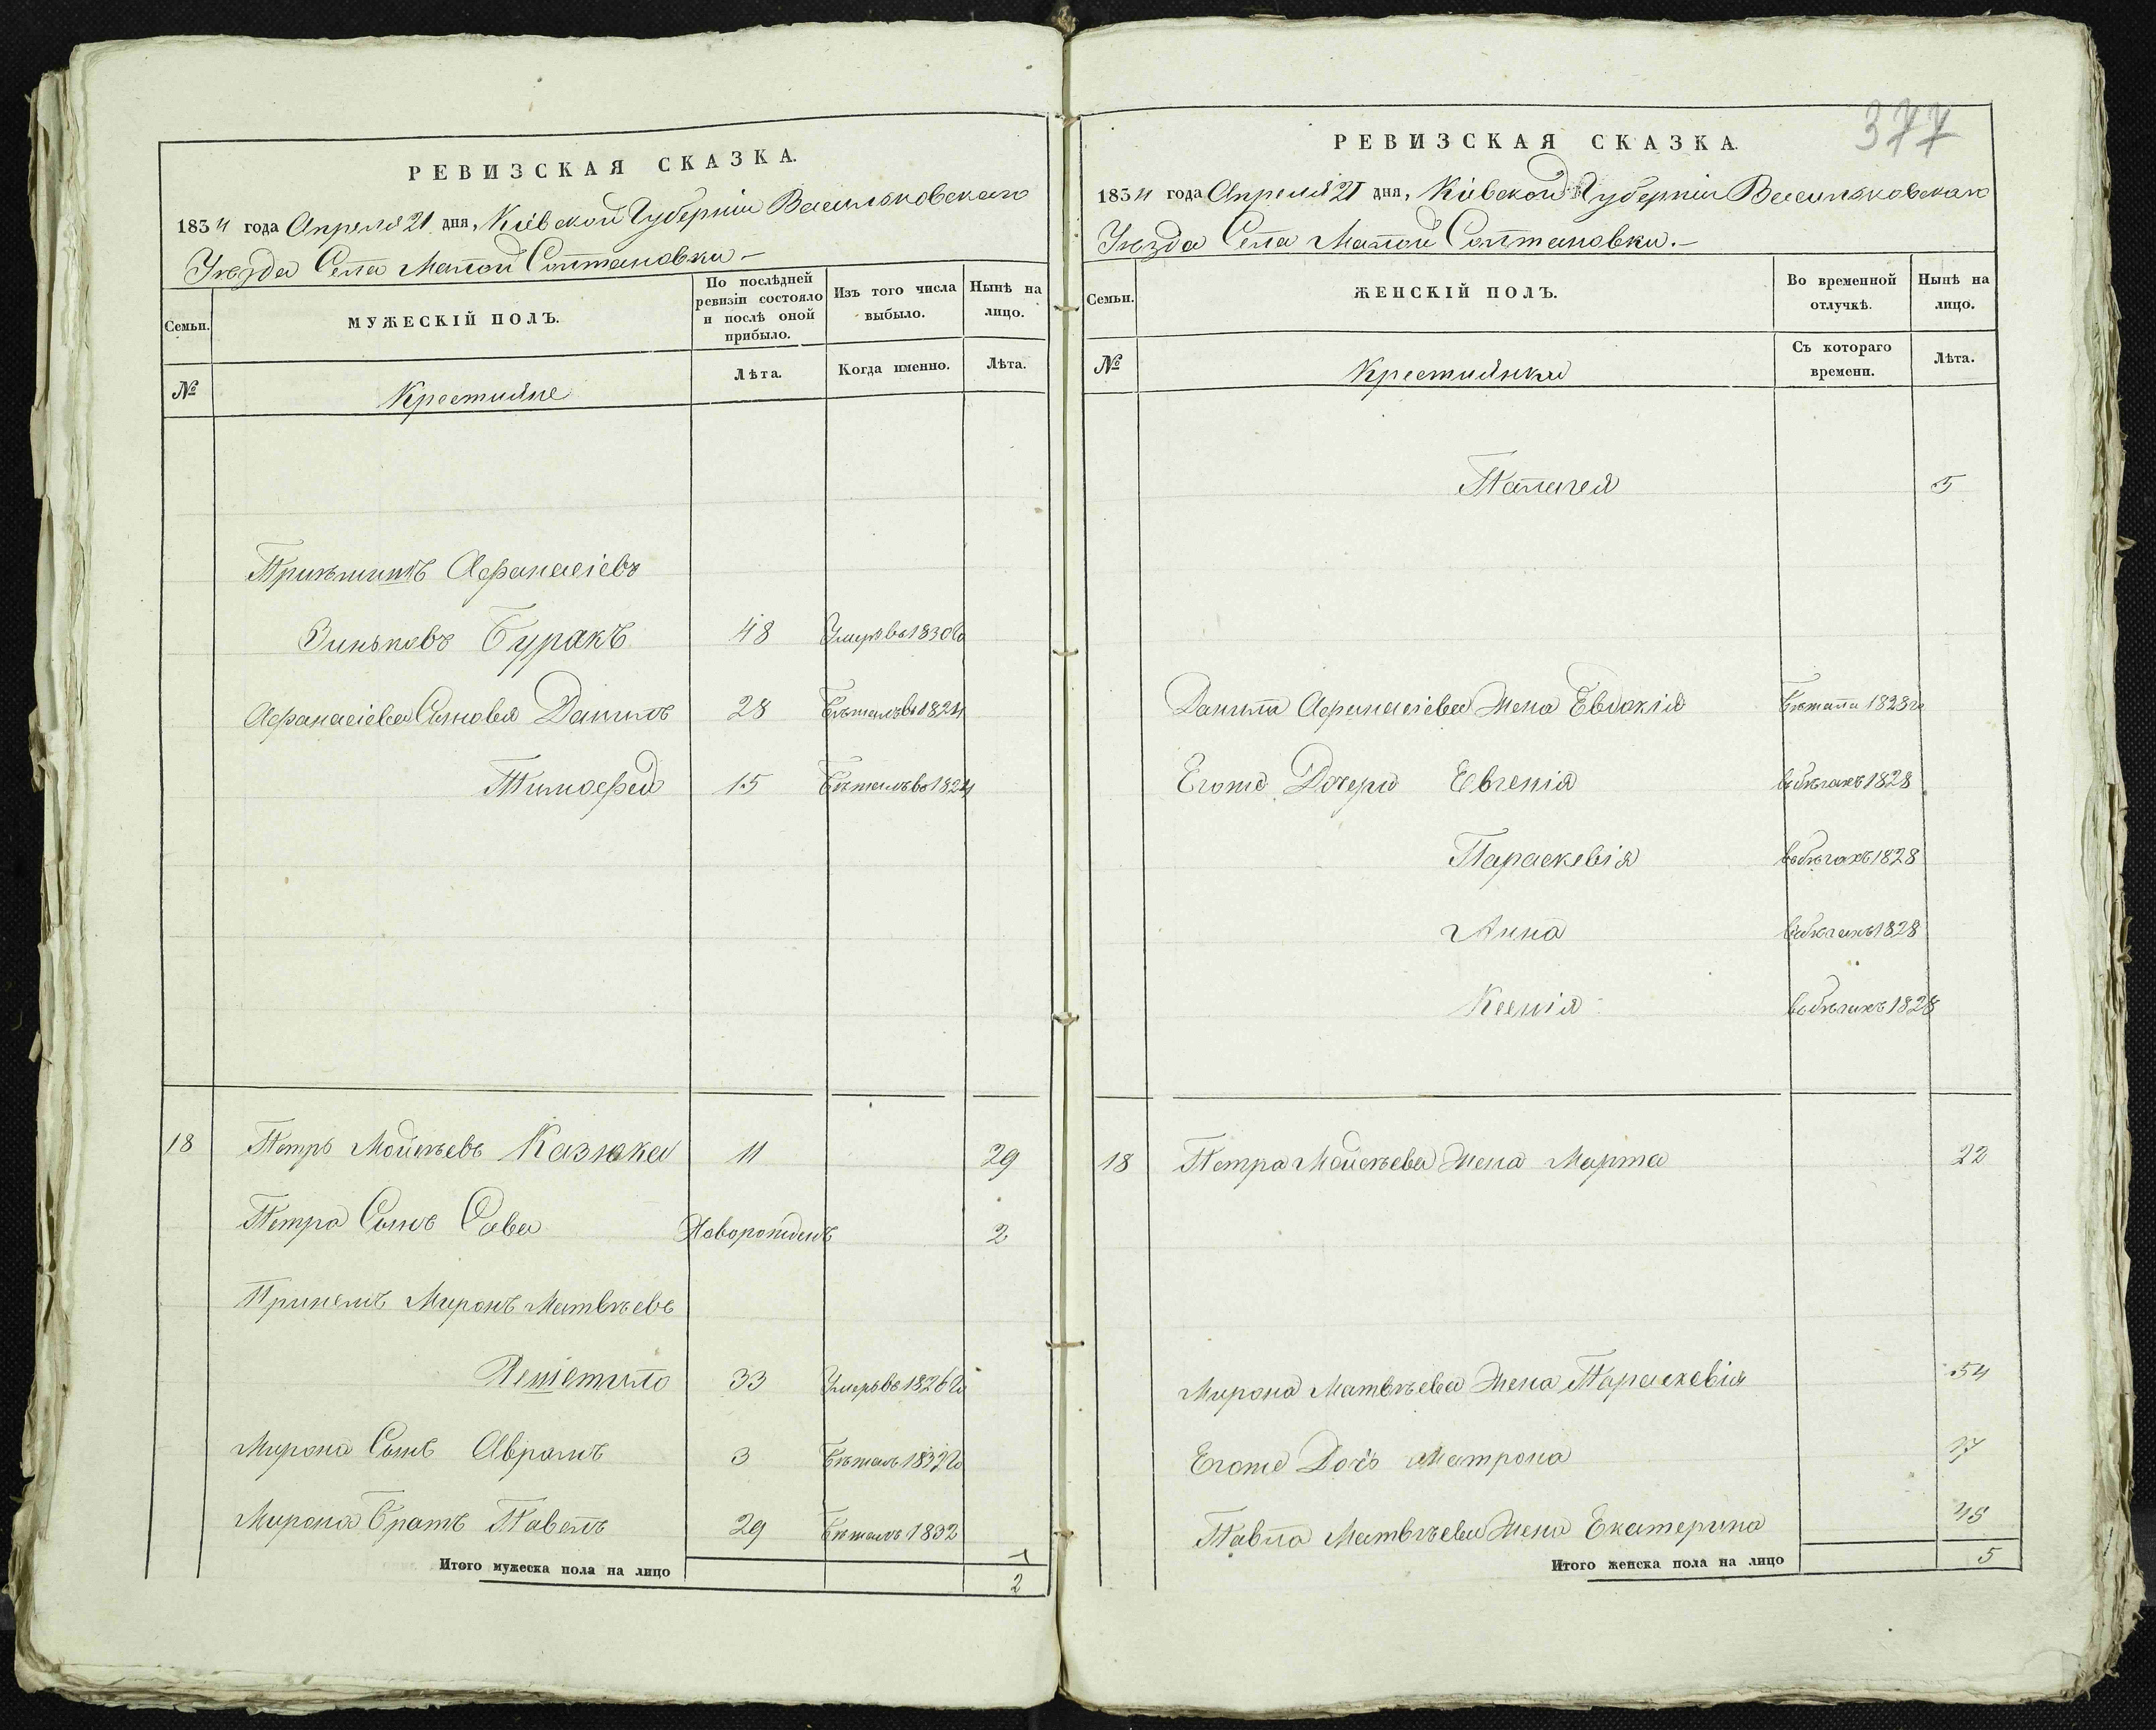 РЕВИЗСКАЯ СКАЗКА.
1834 года Апреля 21 дня, Кіевской Губерніи Васильковскаго
Уѣзда Села Малой Солтановки –
Семьи.
МУЖЕСКІЙ ПОЛЪ.
По послѣдней ревизіи состояло и послѣ оной прибыло.
Изъ того числа выбыло.
Нынѣ на лицо.
№
Крестьяне
Лѣта.
Когда именно.
Лѣта.
Афанасіевъ
Зиньковъ Буракъ 48 Умеръ въ 1830 Го
Афанасіева Сыновья Данило 28 Бѣжалъ въ 1824
Тимофей 15 Бѣжалъ въ 1824
18 Петръ Мойсѣевъ Казюка 11 29
Петра Сынъ Сава Новорожденъ 2
Миронъ Матвѣевъ
33 Умеръ въ 1826 Го
Мирона Сынъ Аврамъ 3 Бѣжалъ 1832 Го
Мирона Братъ Павелъ 29 Бѣжалъ 1832
Итого мужеска пола на лицо 2
377
РЕВИЗСКАЯ СКАЗКА.
1834 года Апреля 21 дня, Кіевской Губерніи Васильковскаго
Уѣзда Села Малой Солтановки. –
Семьи.
ЖЕНСКІЙ ПОЛЪ.
Во временной отлучкѣ.
Нынѣ на лицо.
№
Крестьянки
Съ котораго времени.
Лѣта.
Палагея 5
Данила Афанасіева Жена Евдокія Бѣжала 1828 го
Егоже Дочери Евгенія въ бѣгахъ 1828
Параскевія въ бѣгахъ 1828
Анна въ бѣгахъ 1828
Ксенія въ бѣгахъ 1828
18 Петра Мойсѣева Жена Марта 22
Мирона Матвѣева Жена Параскевія 54
Егоже Дочь Матрона 17
Павла Матвѣева Жена Екатерина 45
Итого женска пола на лицо 5